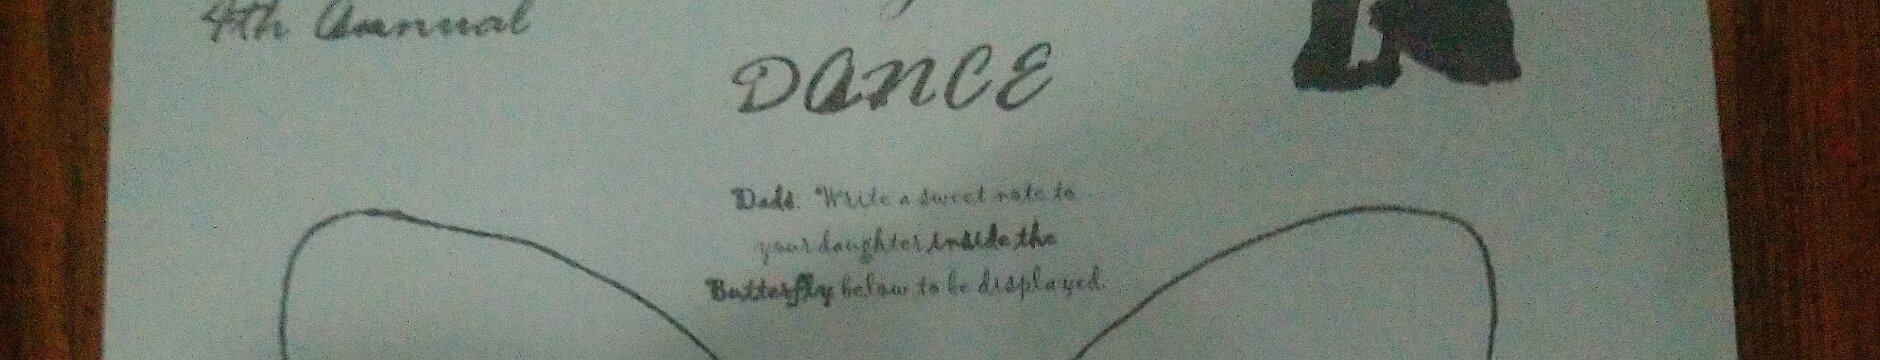 4th Annual
DANCE
Dads: Write a sweet note to
your daughter inside the
Butterfly below to be displayed.